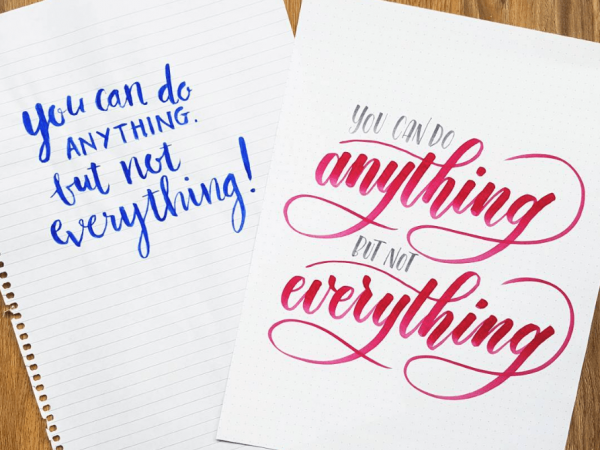 you can do
ANYTHING.
but not
everything!
YOU CAN DO
anything
BUT NOT
everything